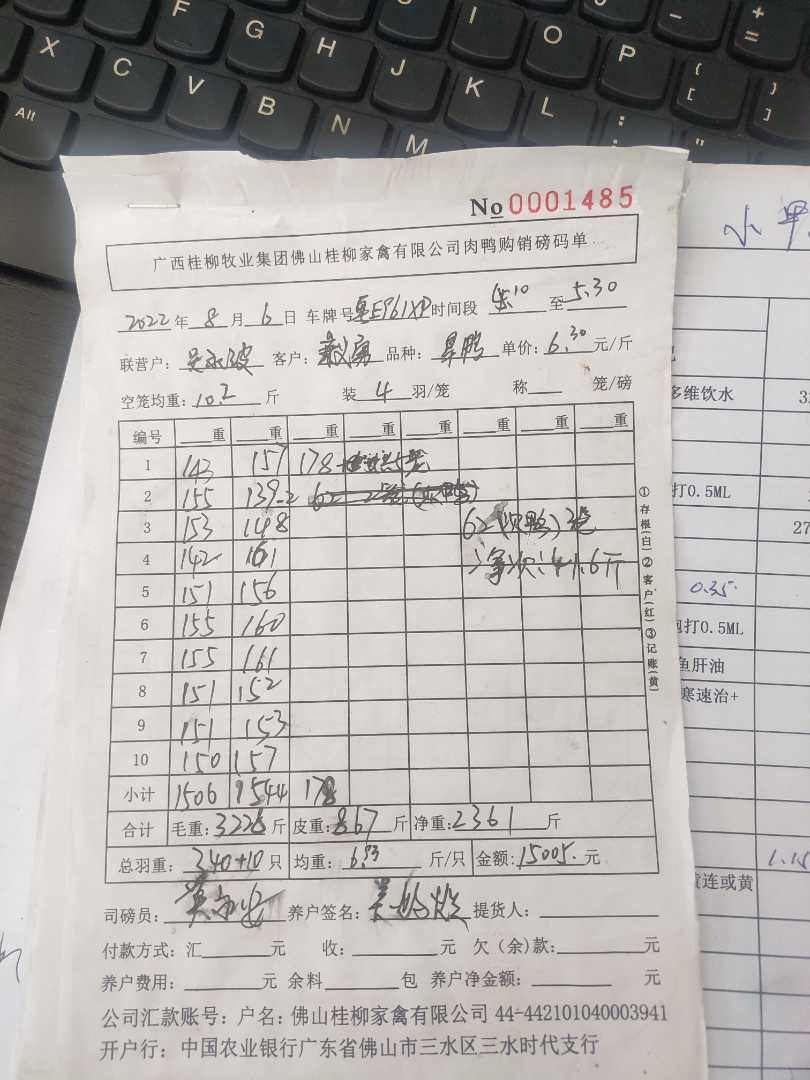 X F G H I O P J K L
Alt C V B N M
No 0001485
小
广西桂柳牧业集团佛山桂柳家禽有限公司肉鸭购销磅码单
2022年8月6日 车牌号粤EP61XP时间段 至5.30
联营户: 客户: 品种: 旱鸭 单价: 6.30元/斤
空笼均重: 10.2斤 装4羽/笼 称 笼/磅
编号 重 重 重 重 重 重 重 重
1 143 157 178
2 155 139
3 153 148 62
4 142 161 41.6斤
5 151 156
6 155 160
7 155 161
8 151 152
9 151 153
10 150 157
小计 1506 1544 178
合计 毛重: 3228斤 皮重: 867斤 净重: 2361斤
总羽重: 340+10只 均重: 6.93斤/只 金额: 15005.元
司磅员: 养户签名: 提货人:
付款方式: 汇 元 收: 元 欠(余)款: 元
养户费用: 元 余料 包 养户净金额: 元
公司汇款账号: 户名: 佛山桂柳家禽有限公司 44-442101040003941
开户行: 中国农业银行广东省佛山市三水区三水时代支行
①存根(白)②客户(红)③记账(黄)
多维饮水
打0.5ML
27
0.35
包打0.5ML
鱼肝油
寒速治+
1.15
黄连或黄